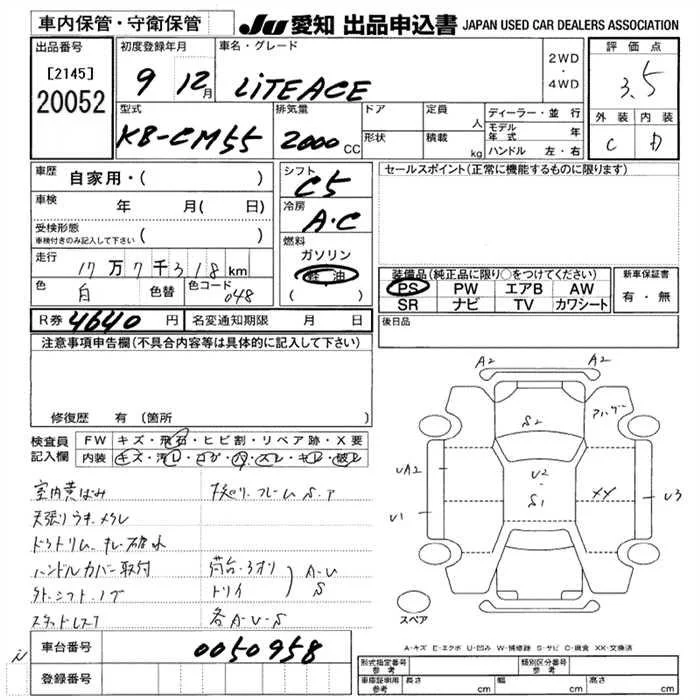 車内保管・守衛保管
JU 愛知 出品申込書 JAPAN USED CAR DEALERS ASSOCIATION
出品番号
[2145]
20052
初度登録年月
9 12月
車名・グレード
LiTEACE
2WD
・
4WD
評価点
3.5
外装 内装
C D
型式
KB-CM55
排気量
2000 CC
ドア
形状
定員
人
積載
kg
ディーラー・並行
モデル年式 年
ハンドル 左・右
車歴
自家用・( )
車検
年 月( 日)
受検形態
車検付きのみ記入して下さい ( )
走行
17万7千318km
色
白
色替
色コード
048
シフト
C5
冷房
A・C
燃料
ガソリン
軽 油
( )
セールスポイント(正常に機能するものに限ります)
装備品(純正品に限り○をつけてください)
PS PW エアB AW
SR ナビ TV カワシート
新車保証書
有・無
後日品
R券 4640 円
名変通知期限 月 日
注意事項申告欄(不具合内容等は具体的に記入して下さい)
修復歴 有 (箇所 )
検査員
記入欄
FW キズ・飛石・ヒビ割・リペア跡・X要
内装 キズ・汚レ・コゲ・穴・スレ・キレ・破レ
室内黄ばみ
天張りウキ・メクレ
ハンドルカバー取付
下廻り・フレーム S・ア
A・U
S
各A・U・S
A2 A2
S2
UA2
U2
S1
XX
U1
U3
スペア
A-キズ E-エクボ U-凹み W-補修跡 S-サビ C-腐食 XX-交換済
車台番号
0050958
登録番号
形式指定番号 参考
類別区分番号 参考
車庫証明用 参考
長さ cm
幅 cm
高さ cm